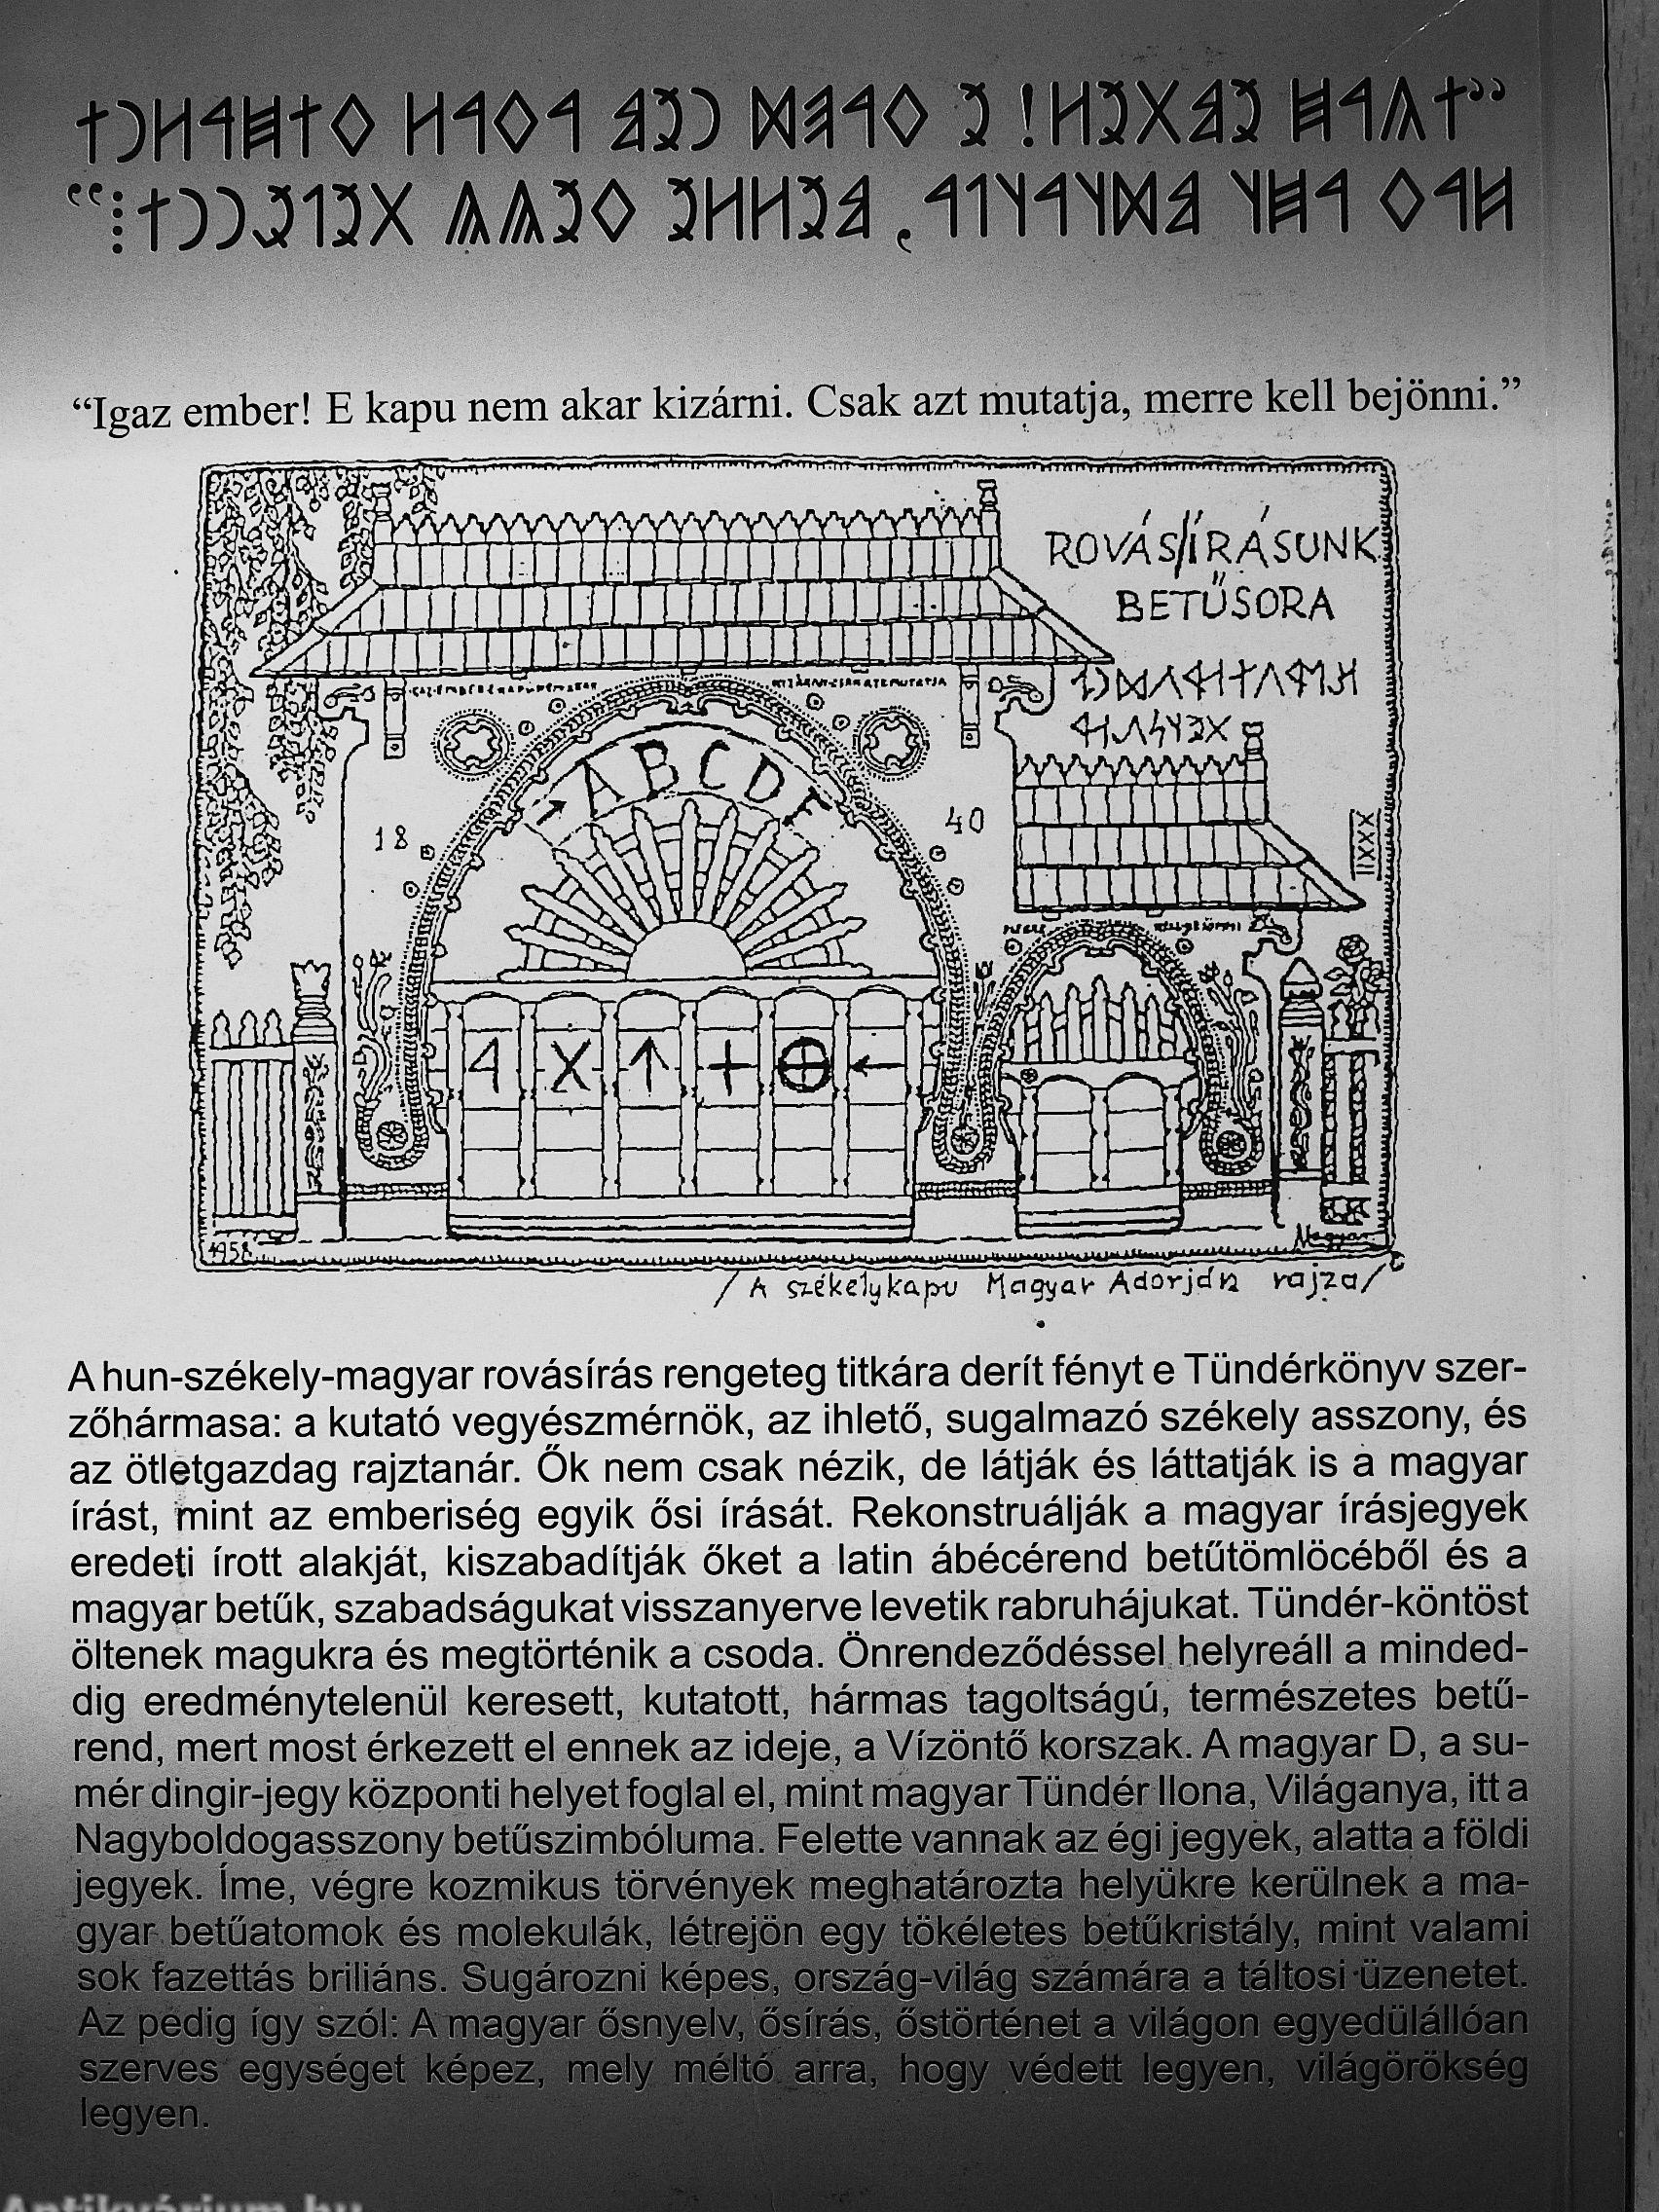 “Igaz ember! E kapu nem akar kizárni. Csak azt mutatja, merre kell bejönni.”
ROVÁS/ÍRÁSUNK
BETŰSORA
ABCDE
18
40
XXII
1958
Magyar
/A székelykapu Magyar Adorján rajza/
A hun-székely-magyar rovásírás rengeteg titkára derít fényt e Tündérkönyv szer-
zőhármasa: a kutató vegyészmérnök, az ihlető, sugalmazó székely asszony, és
az ötletgazdag rajztanár. Ők nem csak nézik, de látják és láttatják is a magyar
írást, mint az emberiség egyik ősi írását. Rekonstruálják a magyar írásjegyek
eredeti írott alakját, kiszabadítják őket a latin ábécérend betűtömlöcéből és a
magyar betűk, szabadságukat visszanyerve levetik rabruhájukat. Tündér-köntöst
öltenek magukra és megtörténik a csoda. Önrendeződéssel helyreáll a minded-
dig eredménytelenül keresett, kutatott, hármas tagoltságú, természetes betű-
rend, mert most érkezett el ennek az ideje, a Vízöntő korszak. A magyar D, a su-
mér dingir-jegy központi helyet foglal el, mint magyar Tündér Ilona, Világanya, itt a
Nagyboldogasszony betűszimbóluma. Felette vannak az égi jegyek, alatta a földi
jegyek. Íme, végre kozmikus törvények meghatározta helyükre kerülnek a ma-
gyar betűatomok és molekulák, létrejön egy tökéletes betűkristály, mint valami
sok fazettás briliáns. Sugározni képes, ország-világ számára a táltosi üzenetet.
Az pedig így szól: A magyar ősnyelv, ősírás, őstörténet a világon egyedülállóan
szerves egységet képez, mely méltó arra, hogy védett legyen, világörökség
legyen.
Antikvárium.hu